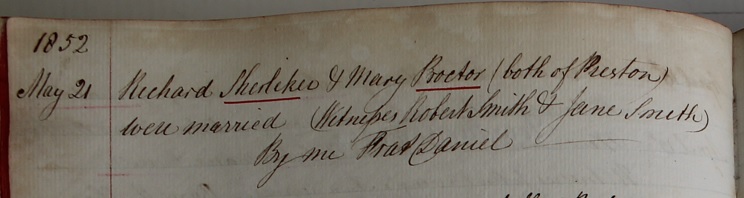 1852
May 21 Richard Sherliker & Mary Proctor (both of Preston)
were married (Witnesses Robert Smith & Jane Smith)
By me Daniel